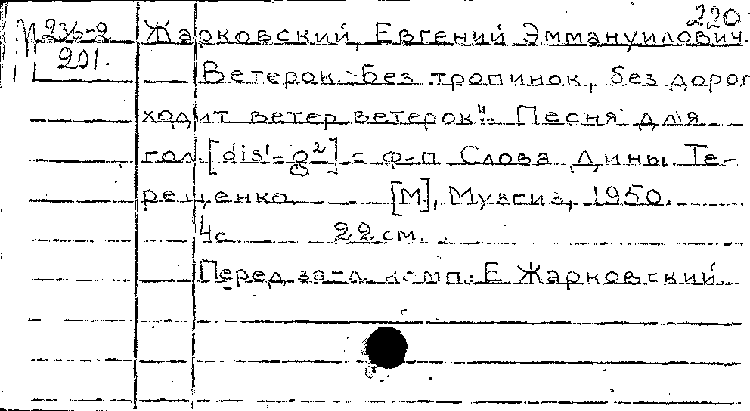 220
236-2
201.
Жарковский, Евгений Эммануилович.
Ветерок "без тропинок, без дорог
ходит ветер ветерок". Песня для
гол. [dis¹-g²] с ф-п Слова Дины Те-
рещенко [М], Музгиз, 1950.
4с 22 см.
Перед загл. комп. Е Жарковский.